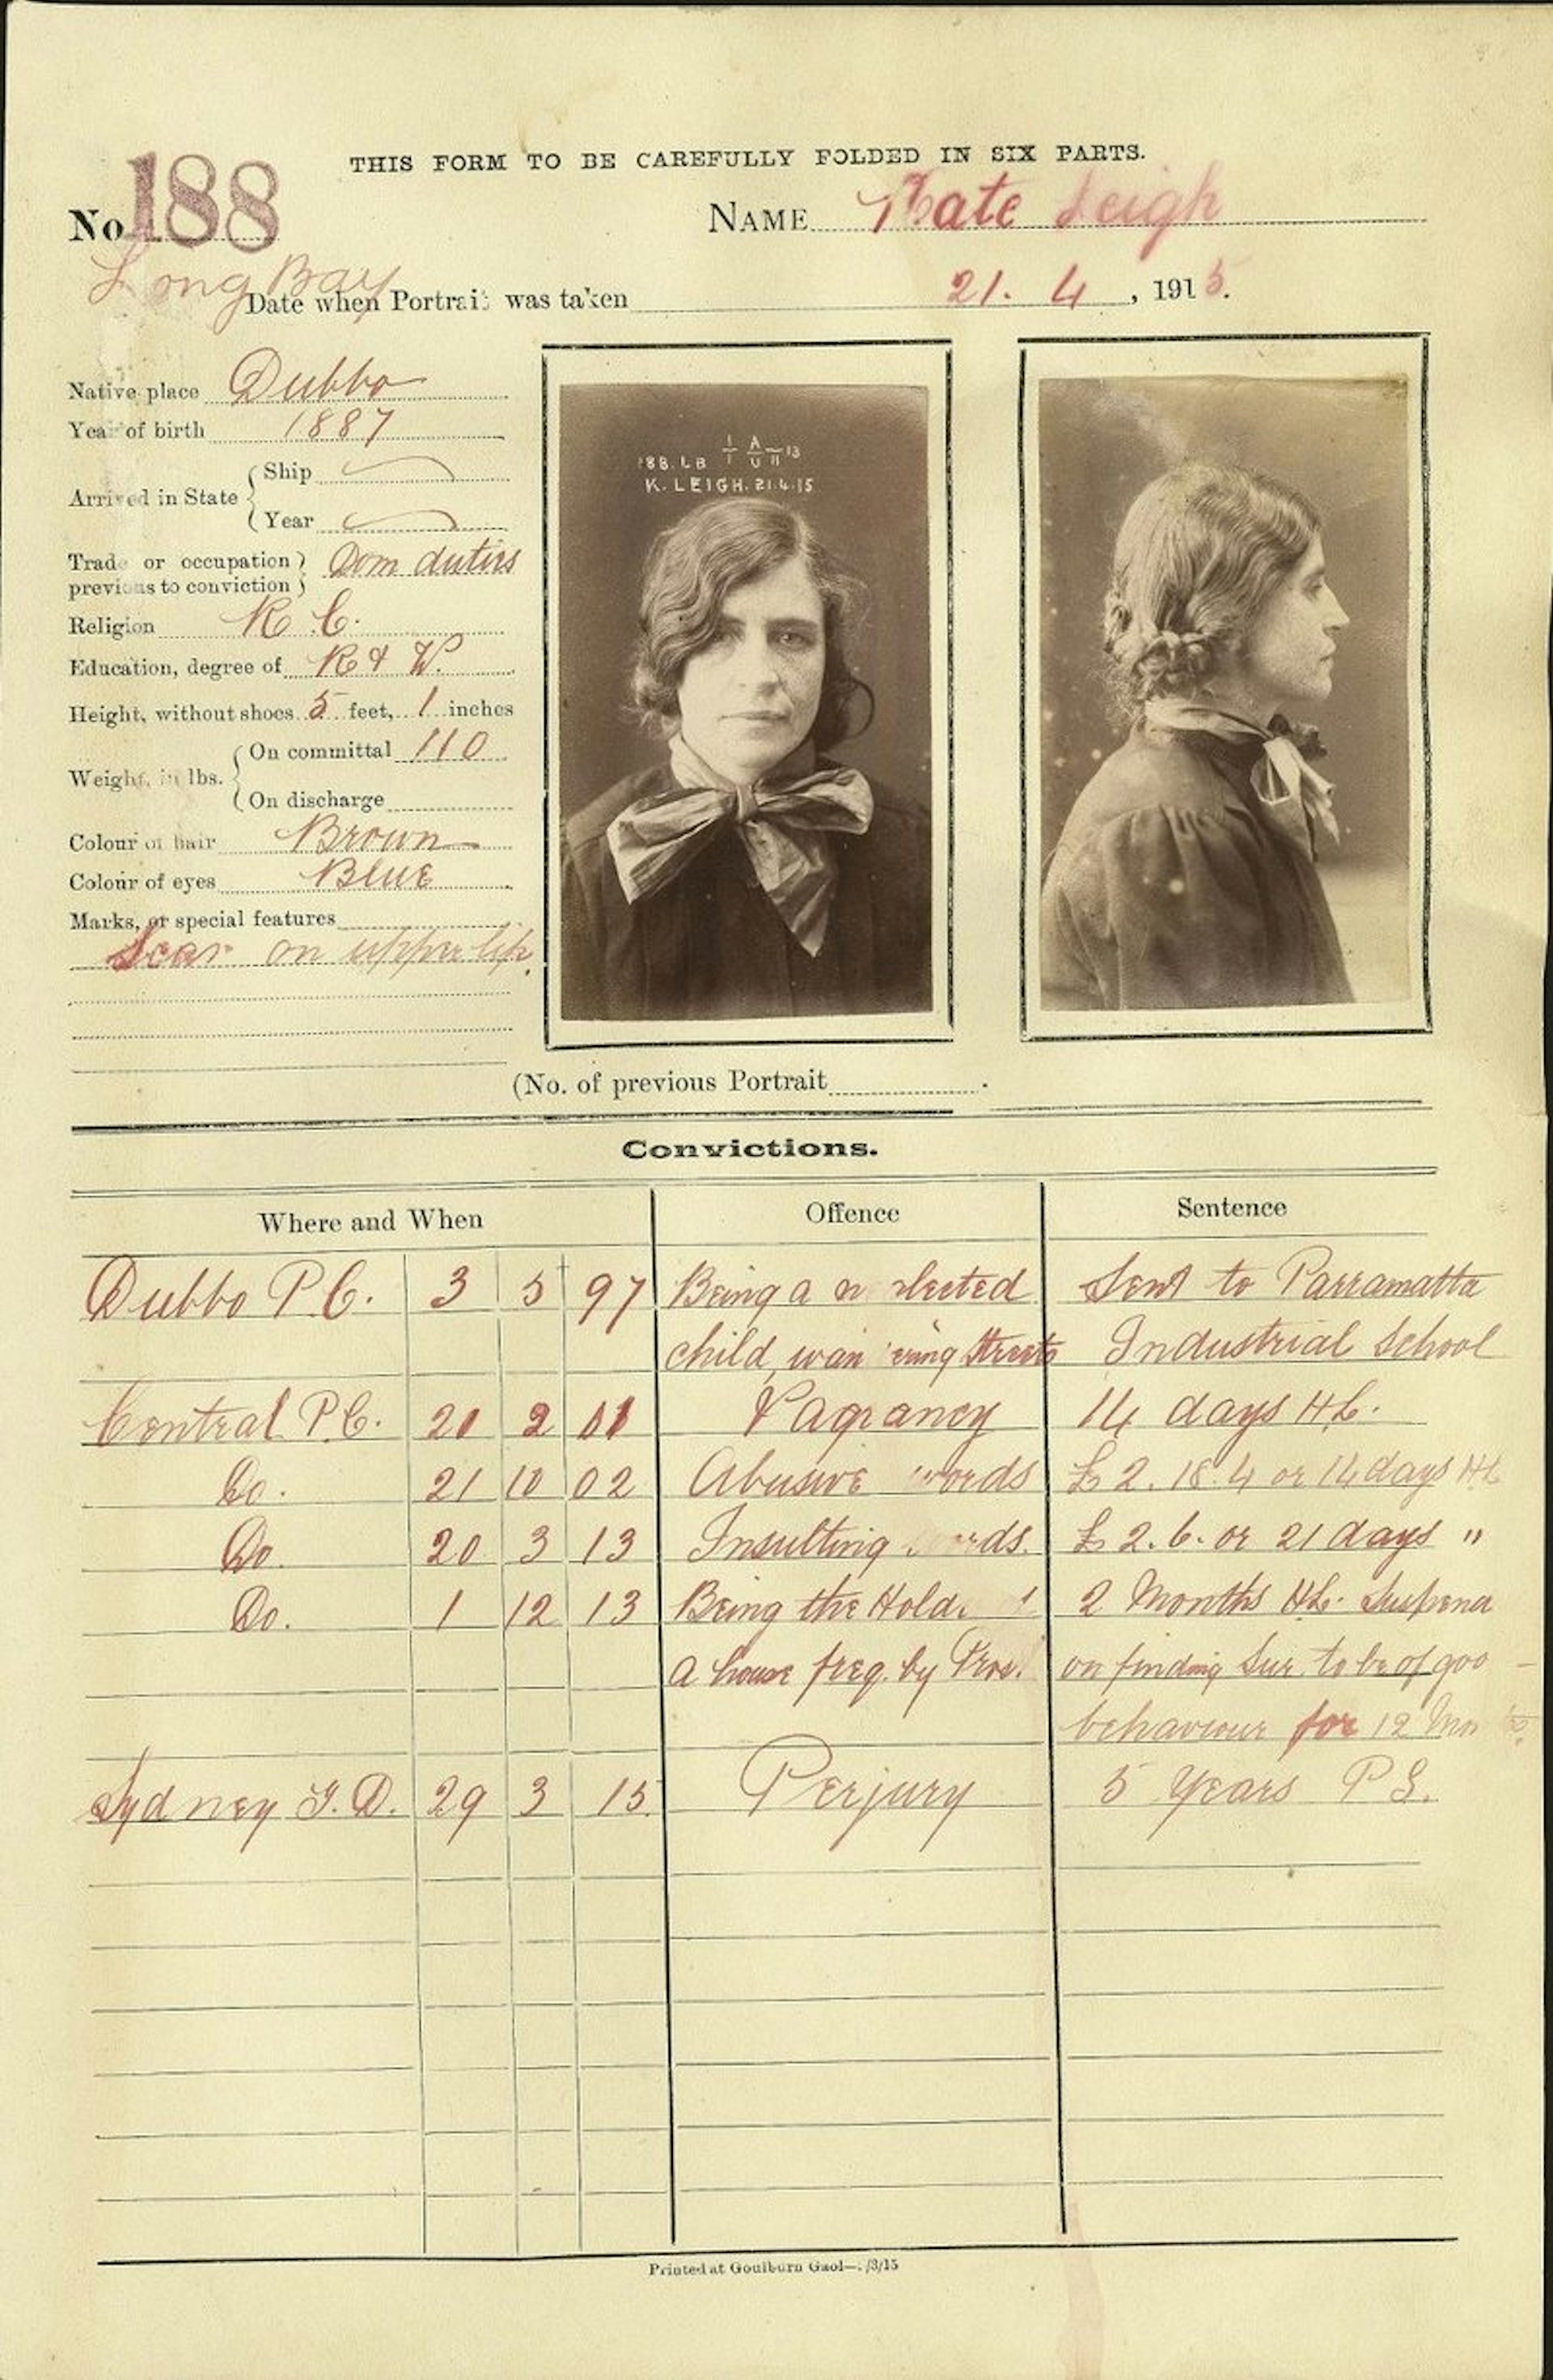 THIS FORM TO BE CAREFULLY FOLDED IN SIX PARTS.
No. 188
NAME Kate Leigh
Long Bay
Date when Portrait was taken 21. 4, 1915.
Native place Dubbo
Year of birth 1887
Arrived in State
Ship
Year
Trade or occupation previous to conviction Dom duties
Religion R C.
Education, degree of R & W.
Height, without shoes 5 feet, 1 inches
Weight, in lbs.
On committal 110
On discharge
Colour of hair Brown
Colour of eyes Blue
Marks, or special features
Scar on upper lip.
188. LB 1/1 A/U 11 13
K. LEIGH. 21.4.15
(No. of previous Portrait
Convictions.
Where and When Offence Sentence
Dubbo P.C. 3 5 97 Being a n lected Sent to Parramatta
child, wan ering streets Industrial School
Central P.C. 20 2 01 Vagrancy 14 days H.L.
Do. 21 10 02 Abusive words £2.18.4 or 14 days HL
Do. 20 3 13 Insulting words. £2.6. or 21 days "
Do. 1 12 13 Being the Hold 2 Months HL. Suspend
a house freq. by Pros. on finding sur. to be of goo
behaviour for 12 Mo
Sydney Q.D. 29 3 15. Perjury 5 Years P S.
Printed at Goulburn Gaol—. /3/15